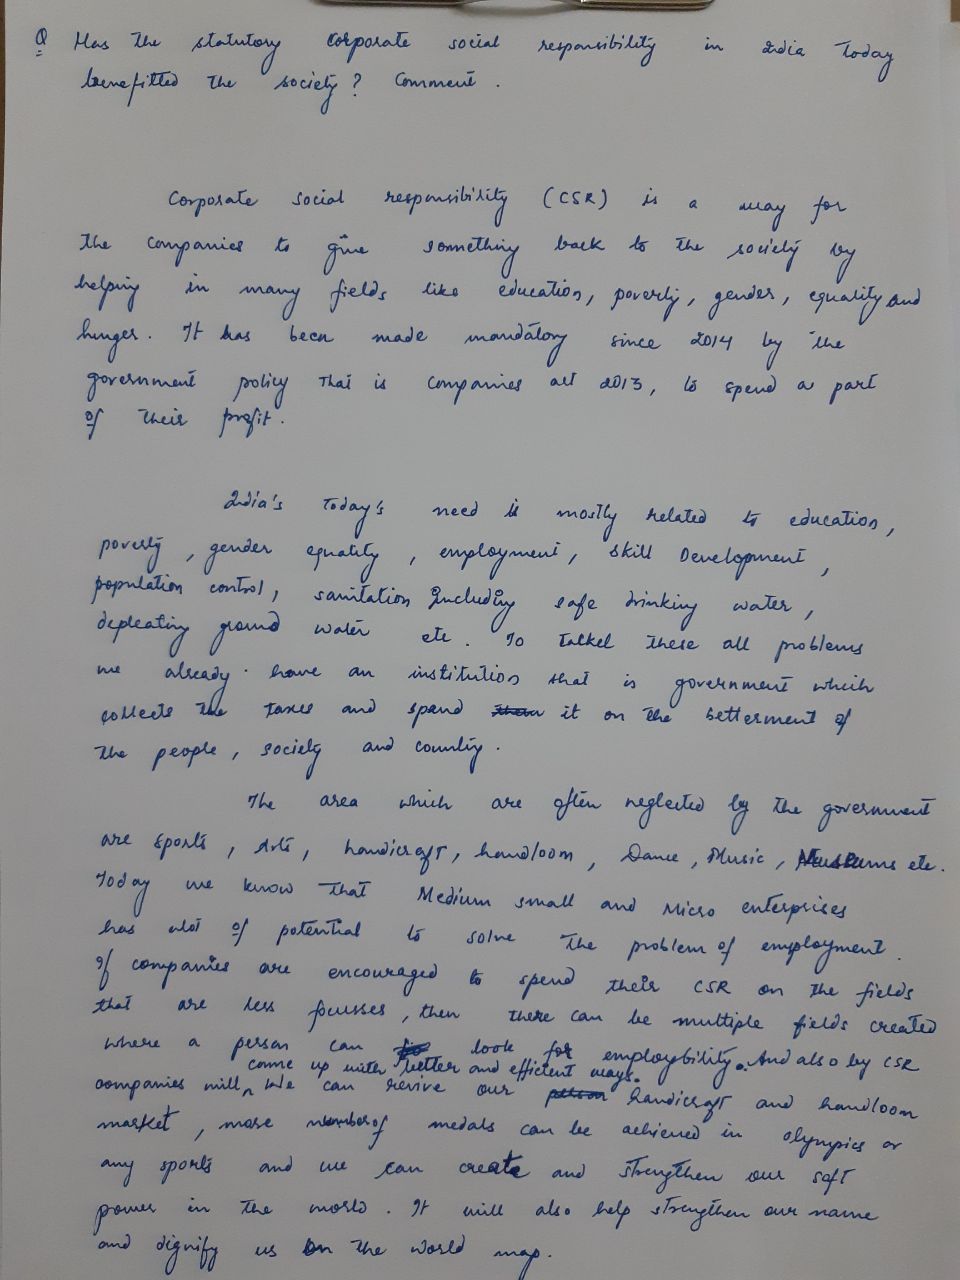 Q Has the statutory corporate social responsibility in India today
benefitted the society? Comment.
Corporate social responsibility (CSR) is a way for
the companies to give something back to the society by
helping in many fields like education, poverty, gender, equality and
hunger. It has been made mandatory since 2014 by the
government policy that is companies act 2013, to spend a part
of their profit.
India's today's need is mostly related to education,
poverty, gender equality, employment, skill Development,
population control, sanitation Including safe drinking water,
depleating ground water etc. To talkel these all problems
we already have an institution that is government which
collects the taxes and spend it on the betterment of
the people, society and country.
The area which are often neglected by the government
are sports, Arts, handicraft, handloom, Dance, Music, Museums etc.
Today we know that Medium small and Micro enterprises
has alot of potential to solve the problem of employment.
If companies are encouraged to spend their CSR on the fields
that are less focusses, then there can be multiple fields created
where a person can look for employbility. And also by CSR
come up with better and efficient ways.
companies will, We can revive our handicraft and handloom
market, more number of medals can be achieved in olympics or
any sports and we can create and strengthen our soft
power in the world. It will also help strengthen our name
and dignify us on the world map.